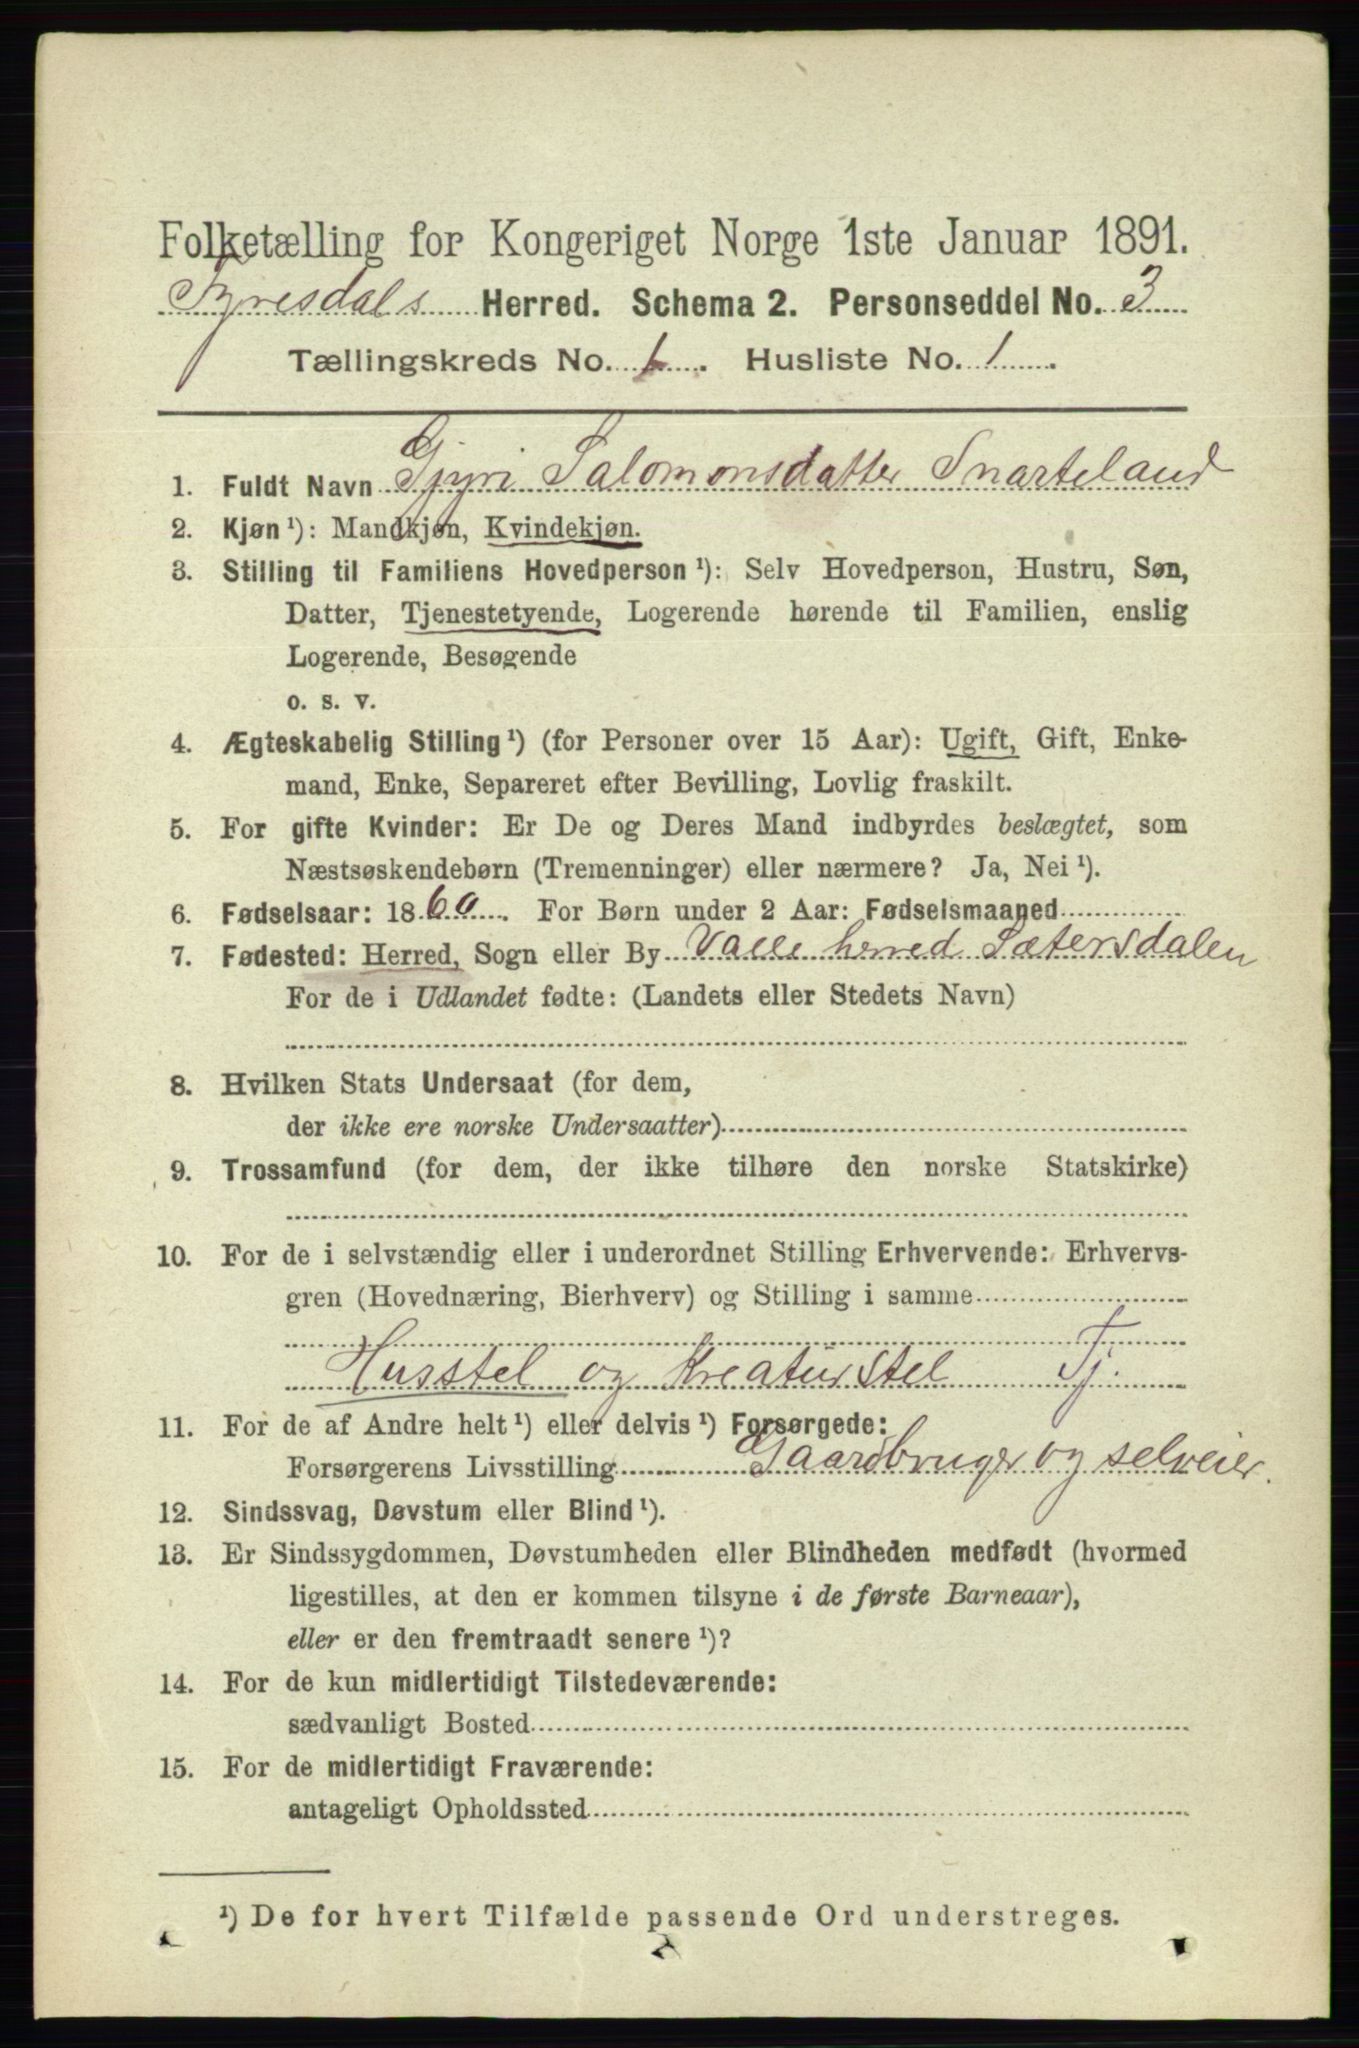 Folketælling for Kongeriget Norge 1ste Januar 1891.
Tyresdals Herred. Schema 2. Personseddel No. 3
Tællingskreds No. 1. Husliste No. 1.
1. Fuldt Navn Gjyri Salomonsdatter Snarteland
2. Kjøn ¹): Mandkjøn, Kvindekjøn.
3. Stilling til Familiens Hovedperson ¹): Selv Hovedperson, Hustru, Søn,
Datter, Tjenestetyende, Logerende hørende til Familien, enslig
Logerende, Besøgende
o. s. v.
4. Ægteskabelig Stilling ¹) (for Personer over 15 Aar): Ugift, Gift, Enke-
mand, Enke, Separeret efter Bevilling, Lovlig fraskilt.
5. For gifte Kvinder: Er De og Deres Mand indbyrdes beslægtet, som
Næstsøskendebørn (Tremenninger) eller nærmere? Ja, Nei ¹).
6. Fødselsaar: 1860. For Børn under 2 Aar: Fødselsmaaned
7. Fødested: Herred, Sogn eller By Valle herred Sætersdalen
For de i Udlandet fødte: (Landets eller Stedets Navn)
8. Hvilken Stats Undersaat (for dem,
der ikke ere norske Undersaatter)
9. Trossamfund (for dem, der ikke tilhøre den norske Statskirke)
10. For de i selvstændig eller i underordnet Stilling Erhvervende: Erhvervs-
gren (Hovednæring, Bierhverv) og Stilling i samme
Husstel og Kreaturstel Tj.
11. For de af Andre helt ¹) eller delvis ¹) Forsørgede:
Forsørgerens Livsstilling Gaardbruger og selveier.
12. Sindssvag, Døvstum eller Blind ¹).
13. Er Sindssygdommen, Døvstumheden eller Blindheden medfødt (hvormed
ligestilles, at den er kommen tilsyne i de første Barneaar),
eller er den fremtraadt senere ¹)?
14. For de kun midlertidigt Tilstedeværende:
sædvanligt Bosted
15. For de midlertidigt Fraværende:
antageligt Opholdssted
¹) De for hvert Tilfælde passende Ord understreges.